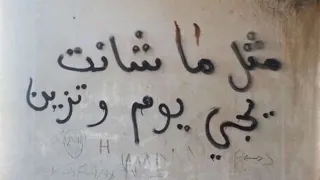 مثل ما شانت
يجي يوم وتزين
H